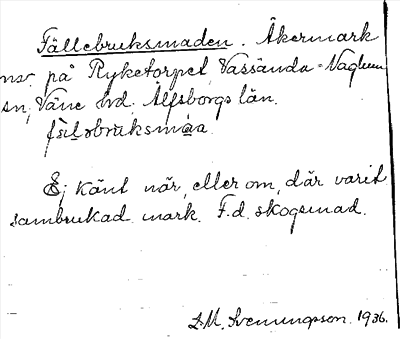 Fällebruksmaden. Åkermark
nv. på Ryketorpet Vassända-Naglum
sn, Väne hd. Älfsborgs län.
Ej känt när, eller om, där varit
sambrukad mark. F.d. skogsmad.
L.M. Svenungsson. 1936.